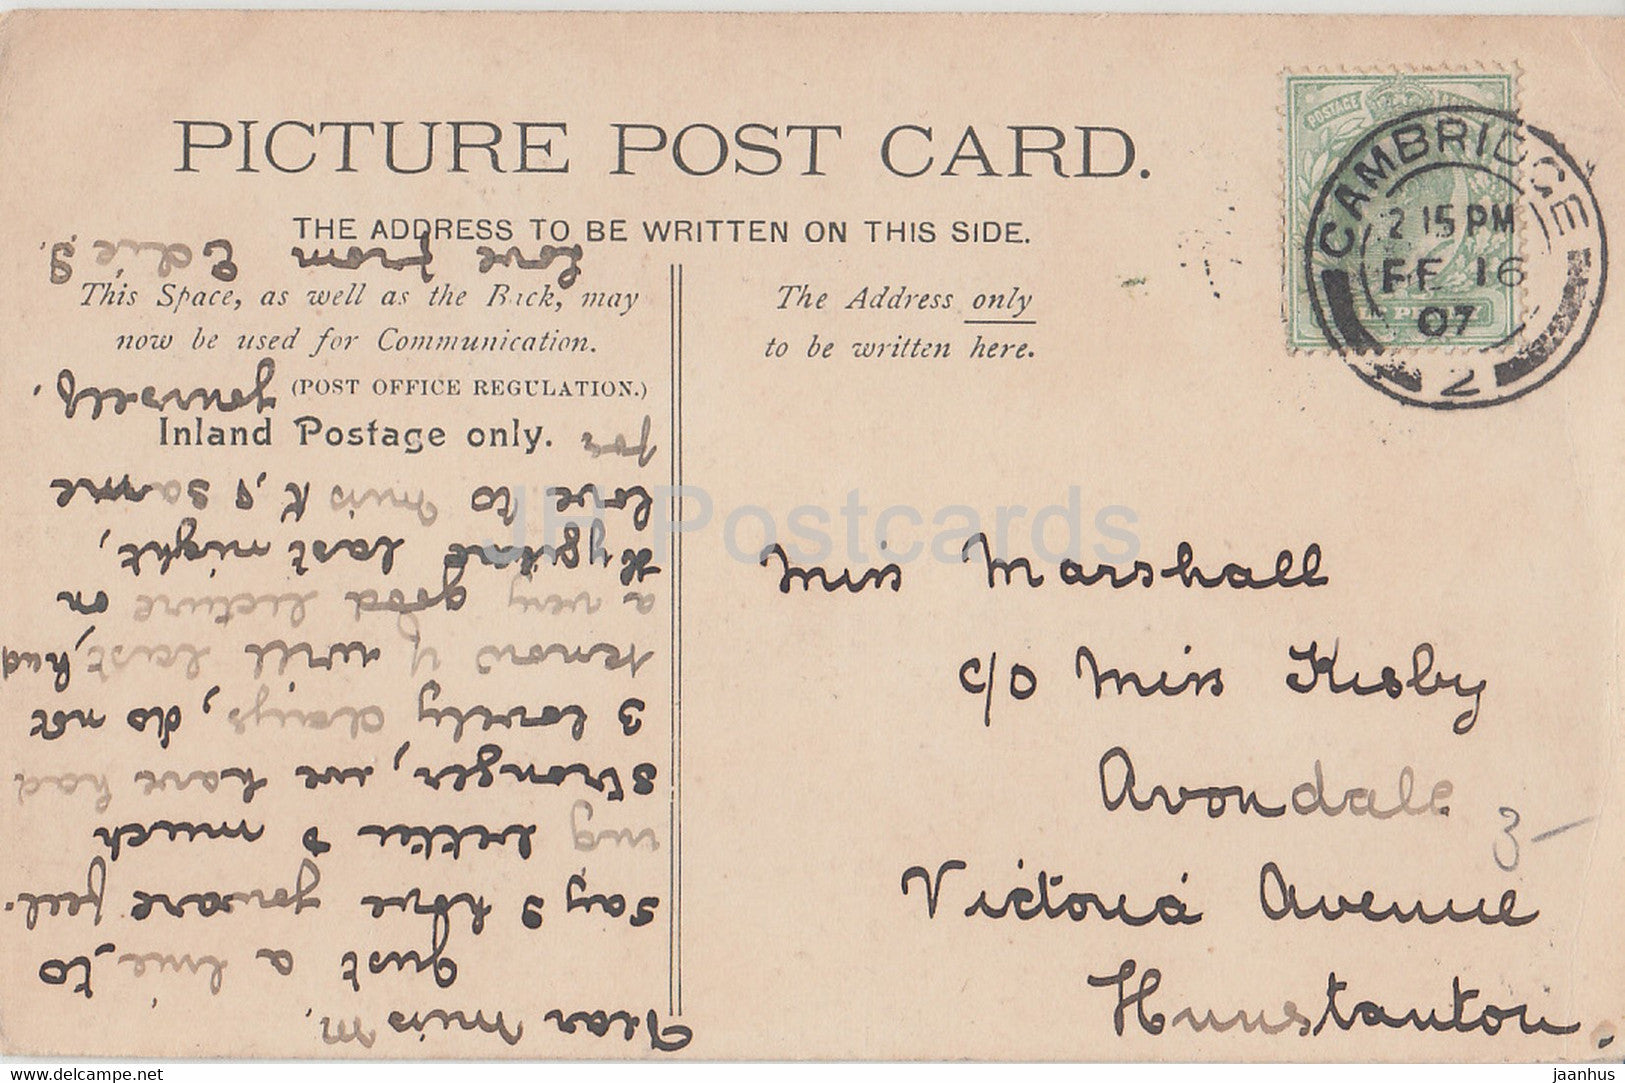 PICTURE POST CARD.
THE ADDRESS TO BE WRITTEN ON THIS SIDE.
This Space, as well as the Back, may
now be used for Communication.
(POST OFFICE REGULATION.)
Inland Postage only.
The Address only
to be written here.
POSTAGE
CAMBRIDGE
2 15 PM
FE 16
07
2
Miss Marshall
c/o Miss Kisby
Avondale
Victoria Avenue
Hunstanton.
3-
Dear Miss M.
Just a line, to
say I hope you are feel-
ing better & much
stronger, we have had
3 lovely days, do not
know if will last, had
a very good lecture on
Hygiene last night,
love to Miss K, & same
for
yourself,
Love from Edie S.
JH Postcards
delcampe.net
jaanhus